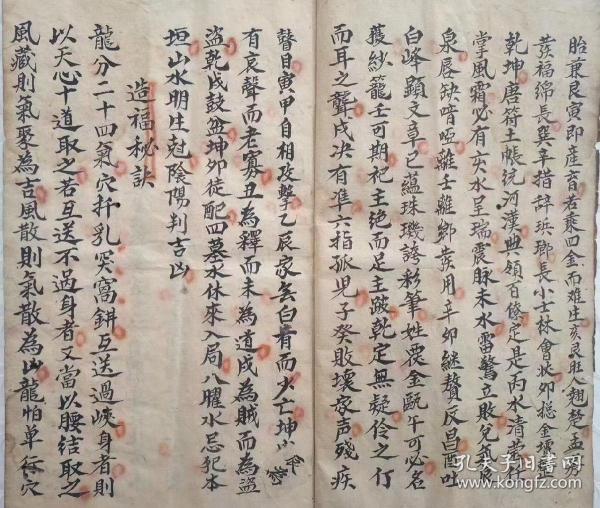 胎兼艮寅即產育若乘四金而难生亥艮旺人翹楚孟
發福綿長巽辛措辞琪瑯長小士林會狀卯揔金
乾坤唐符土帳统河漢典領百僚定是丙水清
掌風霜必有亥水呈瑞震脉未水雷驚立敗兌
泉唇缺喑啞離壬離鄉發用辛卯継贅辰昌酉吐
白峰顕文章巳蘊珠璣誇彩筆姓震金甌午可必名
獲紗籠壬可期祀主绝而足主跛乾定無疑伶之仃
而耳之聾戌决有準六指孤児子癸敗壞家声殘疾
瞽目寅甲自相攻擊乙辰家無白看而少亡坤
有哀聲而老寡丑為釋而未為道戍為賊而為盜
盜乾戌鼓盆坤卯徒配四墓水休來入局八曜水忌犯本
垣山水明生尅陰陽判吉凶
造福秘訣
龍分二十四氣穴扦乳突窩鉗互送過峽身者則
以天心十道取之若互送不過身者又當以腰结取之
風藏則氣聚為吉風散則氣散為凶龍怕单行穴
孔夫子旧书网